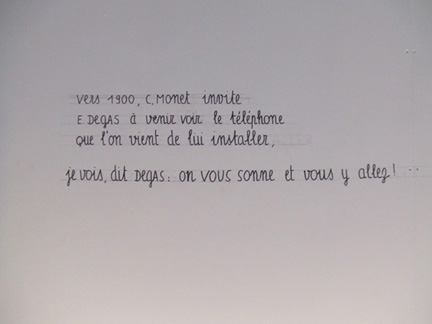 vers 1900, C. MONET invite
E DEGAS à venir voir le téléphone
que l'on vient de lui installer,
je vois, dit DEGAS: on vous sonne et vous y allez!